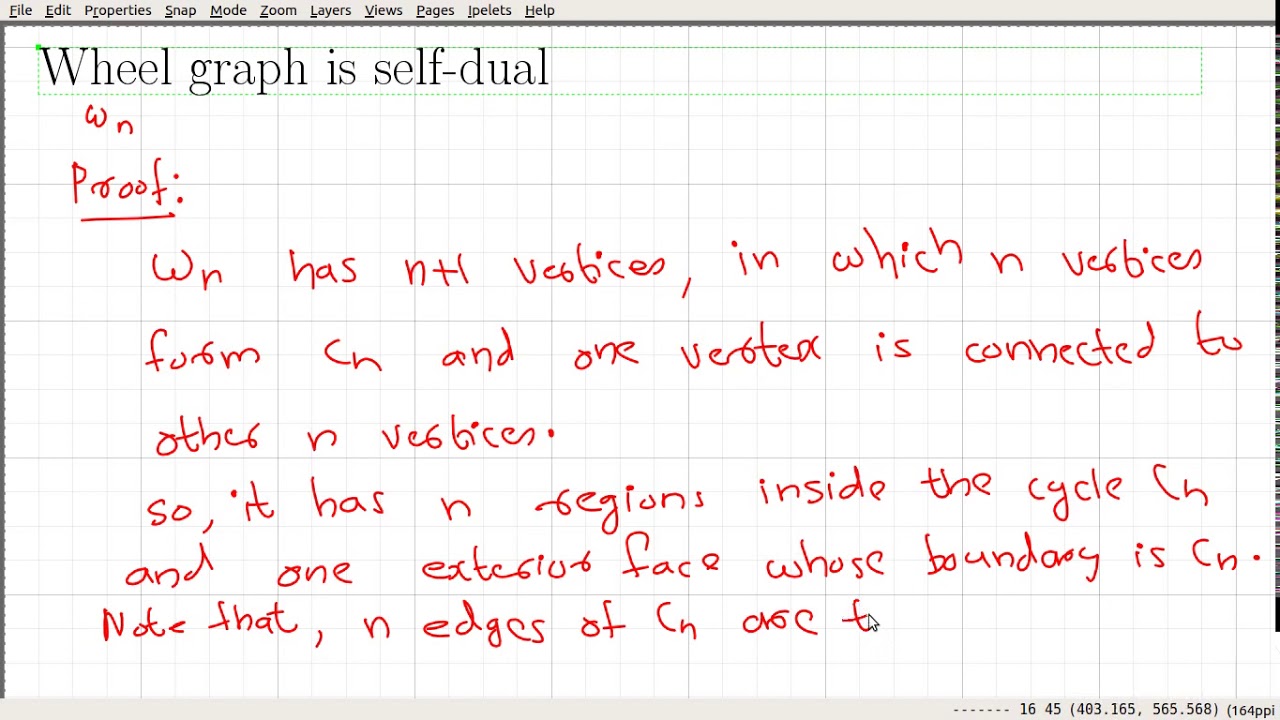 File Edit Properties Snap Mode Zoom Layers Views Pages Ipelets Help
Wheel graph is self-dual
Wn
Proof:
Wn has n+1 vertices, in which n vertices
form Cn and one vertex is connected to
other n vertices.
so, it has n regions inside the cycle Cn
and one exterior face whose boundary is Cn.
Note that, n edges of Cn are t
------- 16 45 (403.165, 565.568) (164ppi